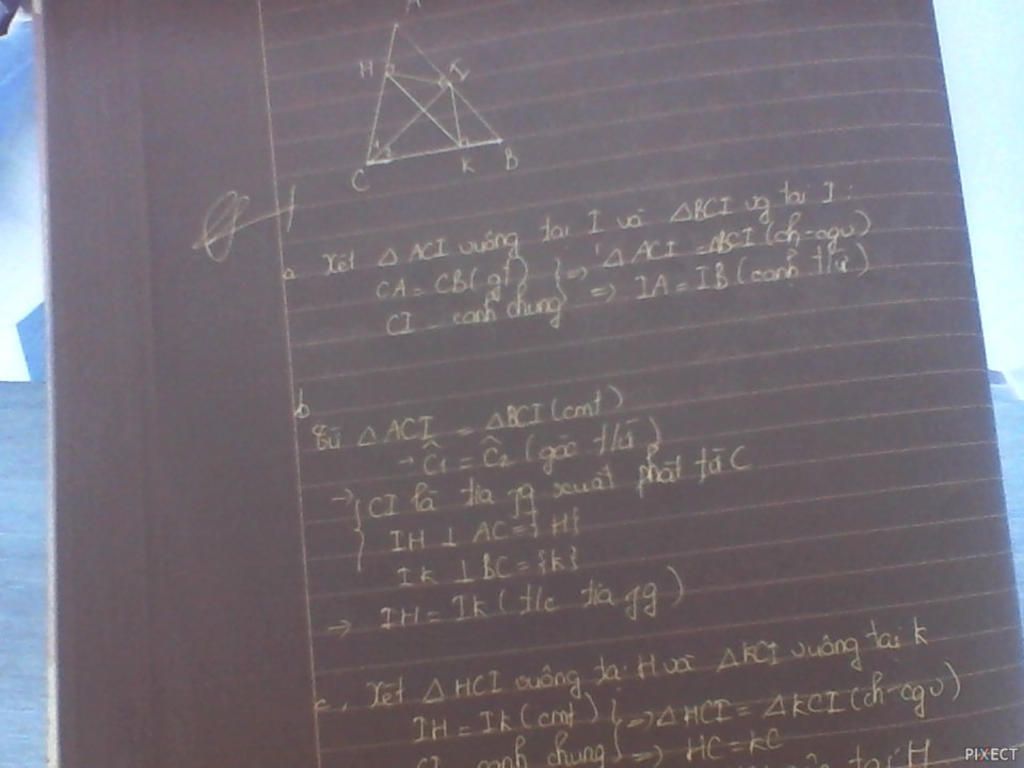 A
H I
C K B
a Xét △ ACI vuông tại I và △BCI vg tại I :
CA = CB( gt) } => △ ACI = △BCI (ch-cgv)
CI cạnh chung => IA = IB (cạnh t/ứ)
b
Từ △ ACI = △BCI (cmt)
→ Ĉ₁ = Ĉ₂ (góc t/ứ )
→ { CI là tia pg xuất phát từ C
IH ⊥ AC = { H}
IK ⊥ BC = {k}
→ IH = Ik ( t/c tia pg )
c, Xét △ HCI vuông tại H và △ KCI vuông tại k
IH = Ik (cmt) } => △HCI = △kCI (ch-cgv)
CI cạnh chung => HC = kC
tại H
PIXECT